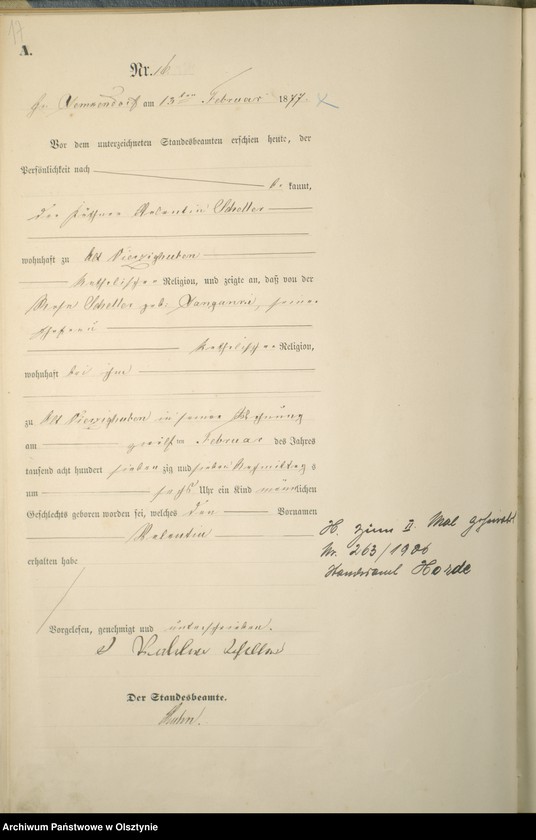 17
A.
Nr. 16
am 13ten Februar 1877.
Vor dem unterzeichneten Standesbeamten erschien heute, der
Persönlichkeit nach
be kannt,
der Käthner Valentin Scheller
wohnhaft zu Alt Vierzighuben
katholischer Religion, und zeigte an, daß von der
Scheller geb. seiner
Ehefrau
katholischer Religion,
wohnhaft bei ihm
zu Alt Vierzighuben in seiner Wohnung
am zwölften Februar des Jahres
tausend acht hundert sieben zig und sieben Nachmittags
um sechs Uhr ein Kind männlichen
Geschlechts geboren worden sei, welches den Vornamen
Valentin
erhalten habe
H. zum II. Mal geheiratet
Nr. 263/1906
Standesamt Hörde
Vorgelesen, genehmigt und unterschrieben.
Der Standesbeamte.
Archiwum Państwowe w Olsztynie